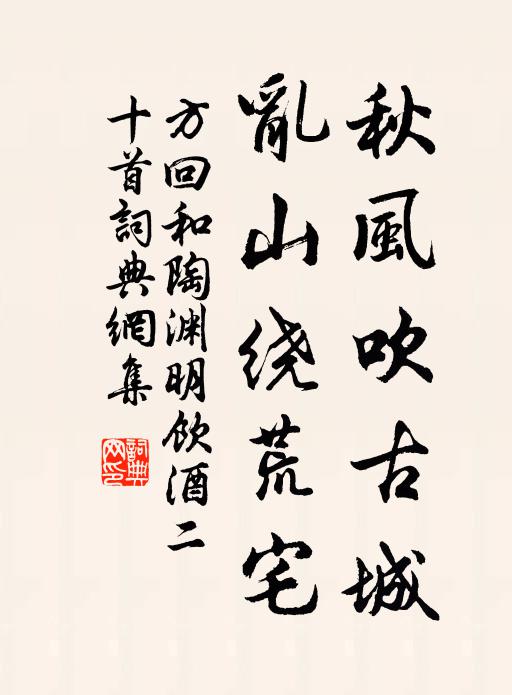 秋風吹古城
亂山绕荒宅
方回和陶淵明飲酒二
十首詞典網集
詞典
网印